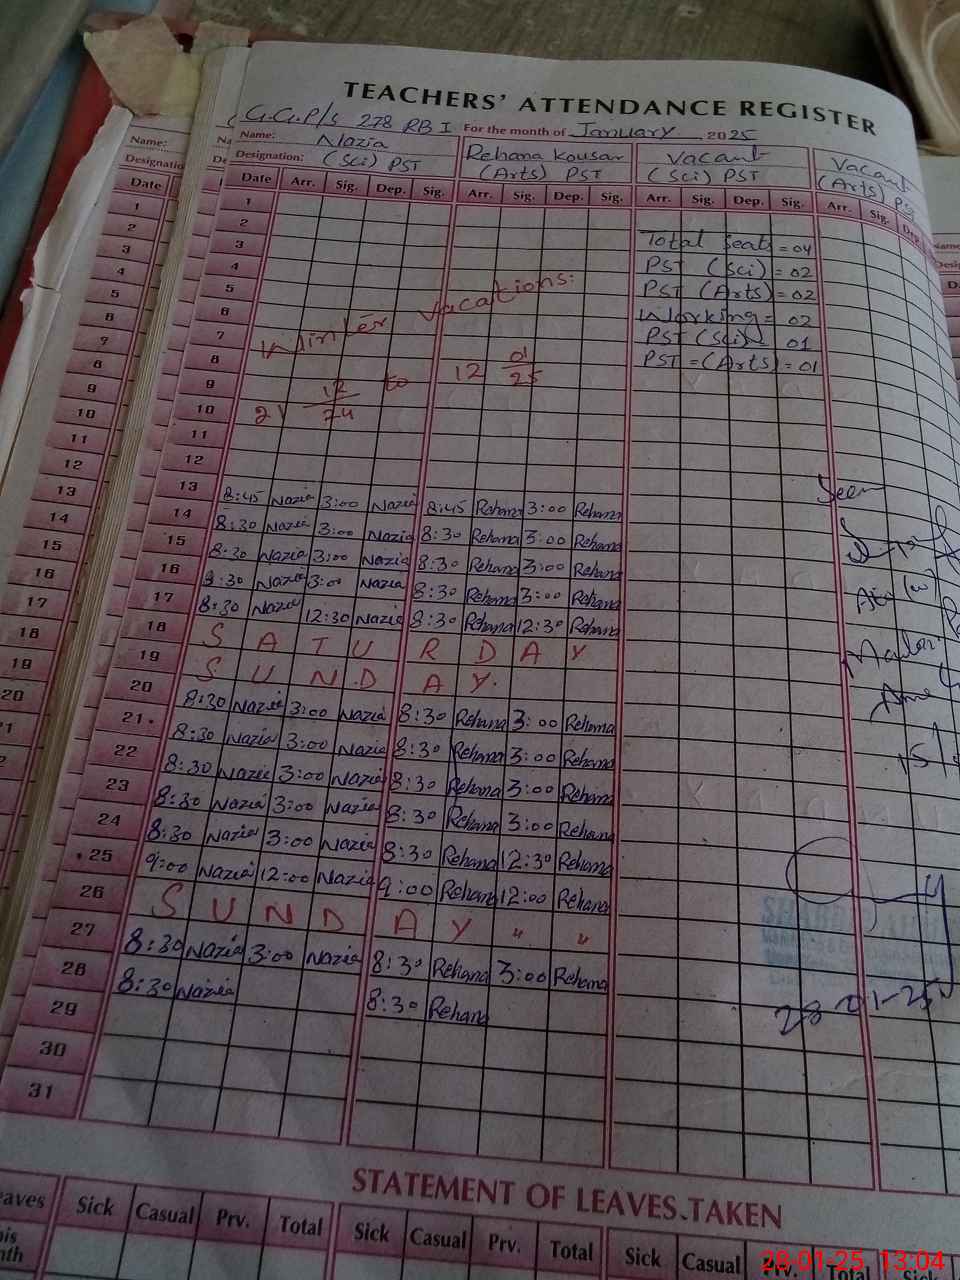 TEACHERS' ATTENDANCE REGISTER
G.G.P/S 278 RB I For the month of January 2025
Name: Nazia Rehana Kousar Vacant Vacant
Designation: (Sci) PST (Arts) PST (Sci) PST (Arts)
Date Arr. Sig. Dep. Sig. Arr. Sig. Dep. Sig. Arr. Sig. Dep. Sig. Arr. Sig. Dep.
1
2
3 Total Seats = 04
4 PST (Sci) = 02
5 PST (Arts) = 02
6 Working = 02
7 PST (Sci) = 01
8 PST = (Arts) = 01
Winter Vacations:
21 12/24 to 12 01/25
9
10
11
12
13 8:45 Nazia 3:00 Nazia 8:45 Rehana 3:00 Rehana
14 8:30 Nazia 3:00 Nazia 8:30 Rehana 3:00 Rehana
15 8:30 Nazia 3:00 Nazia 8:30 Rehana 3:00 Rehana
16 8:30 Nazia 3:00 Nazia 8:30 Rehana 3:00 Rehana
17 8:30 Nazia 12:30 Nazia 8:30 Rehana 12:30 Rehana
18 S A T U R D A Y
19 S U N D A Y.
20 8:30 Nazia 3:00 Nazia 8:30 Rehana 3:00 Rehana
21 8:30 Nazia 3:00 Nazia 8:30 Rehana 3:00 Rehana
22 8:30 Nazia 3:00 Nazia 8:30 Rehana 3:00 Rehana
23 8:30 Nazia 3:00 Nazia 8:30 Rehana 3:00 Rehana
24 8:30 Nazia 3:00 Nazia 8:30 Rehana 12:30 Rehana
25 9:00 Nazia 12:00 Nazia 9:00 Rehana 12:00 Rehana
26 S U N D A Y " "
27 8:30 Nazia 3:00 Nazia 8:30 Rehana 3:00 Rehana
28 8:30 Nazia 8:30 Rehana
29
30
31
Seen
28-01-25
STATEMENT OF LEAVES TAKEN
Sick Casual Prv. Total Sick Casual Prv. Total Sick Casual Prv. Total
28-01-25 13:04